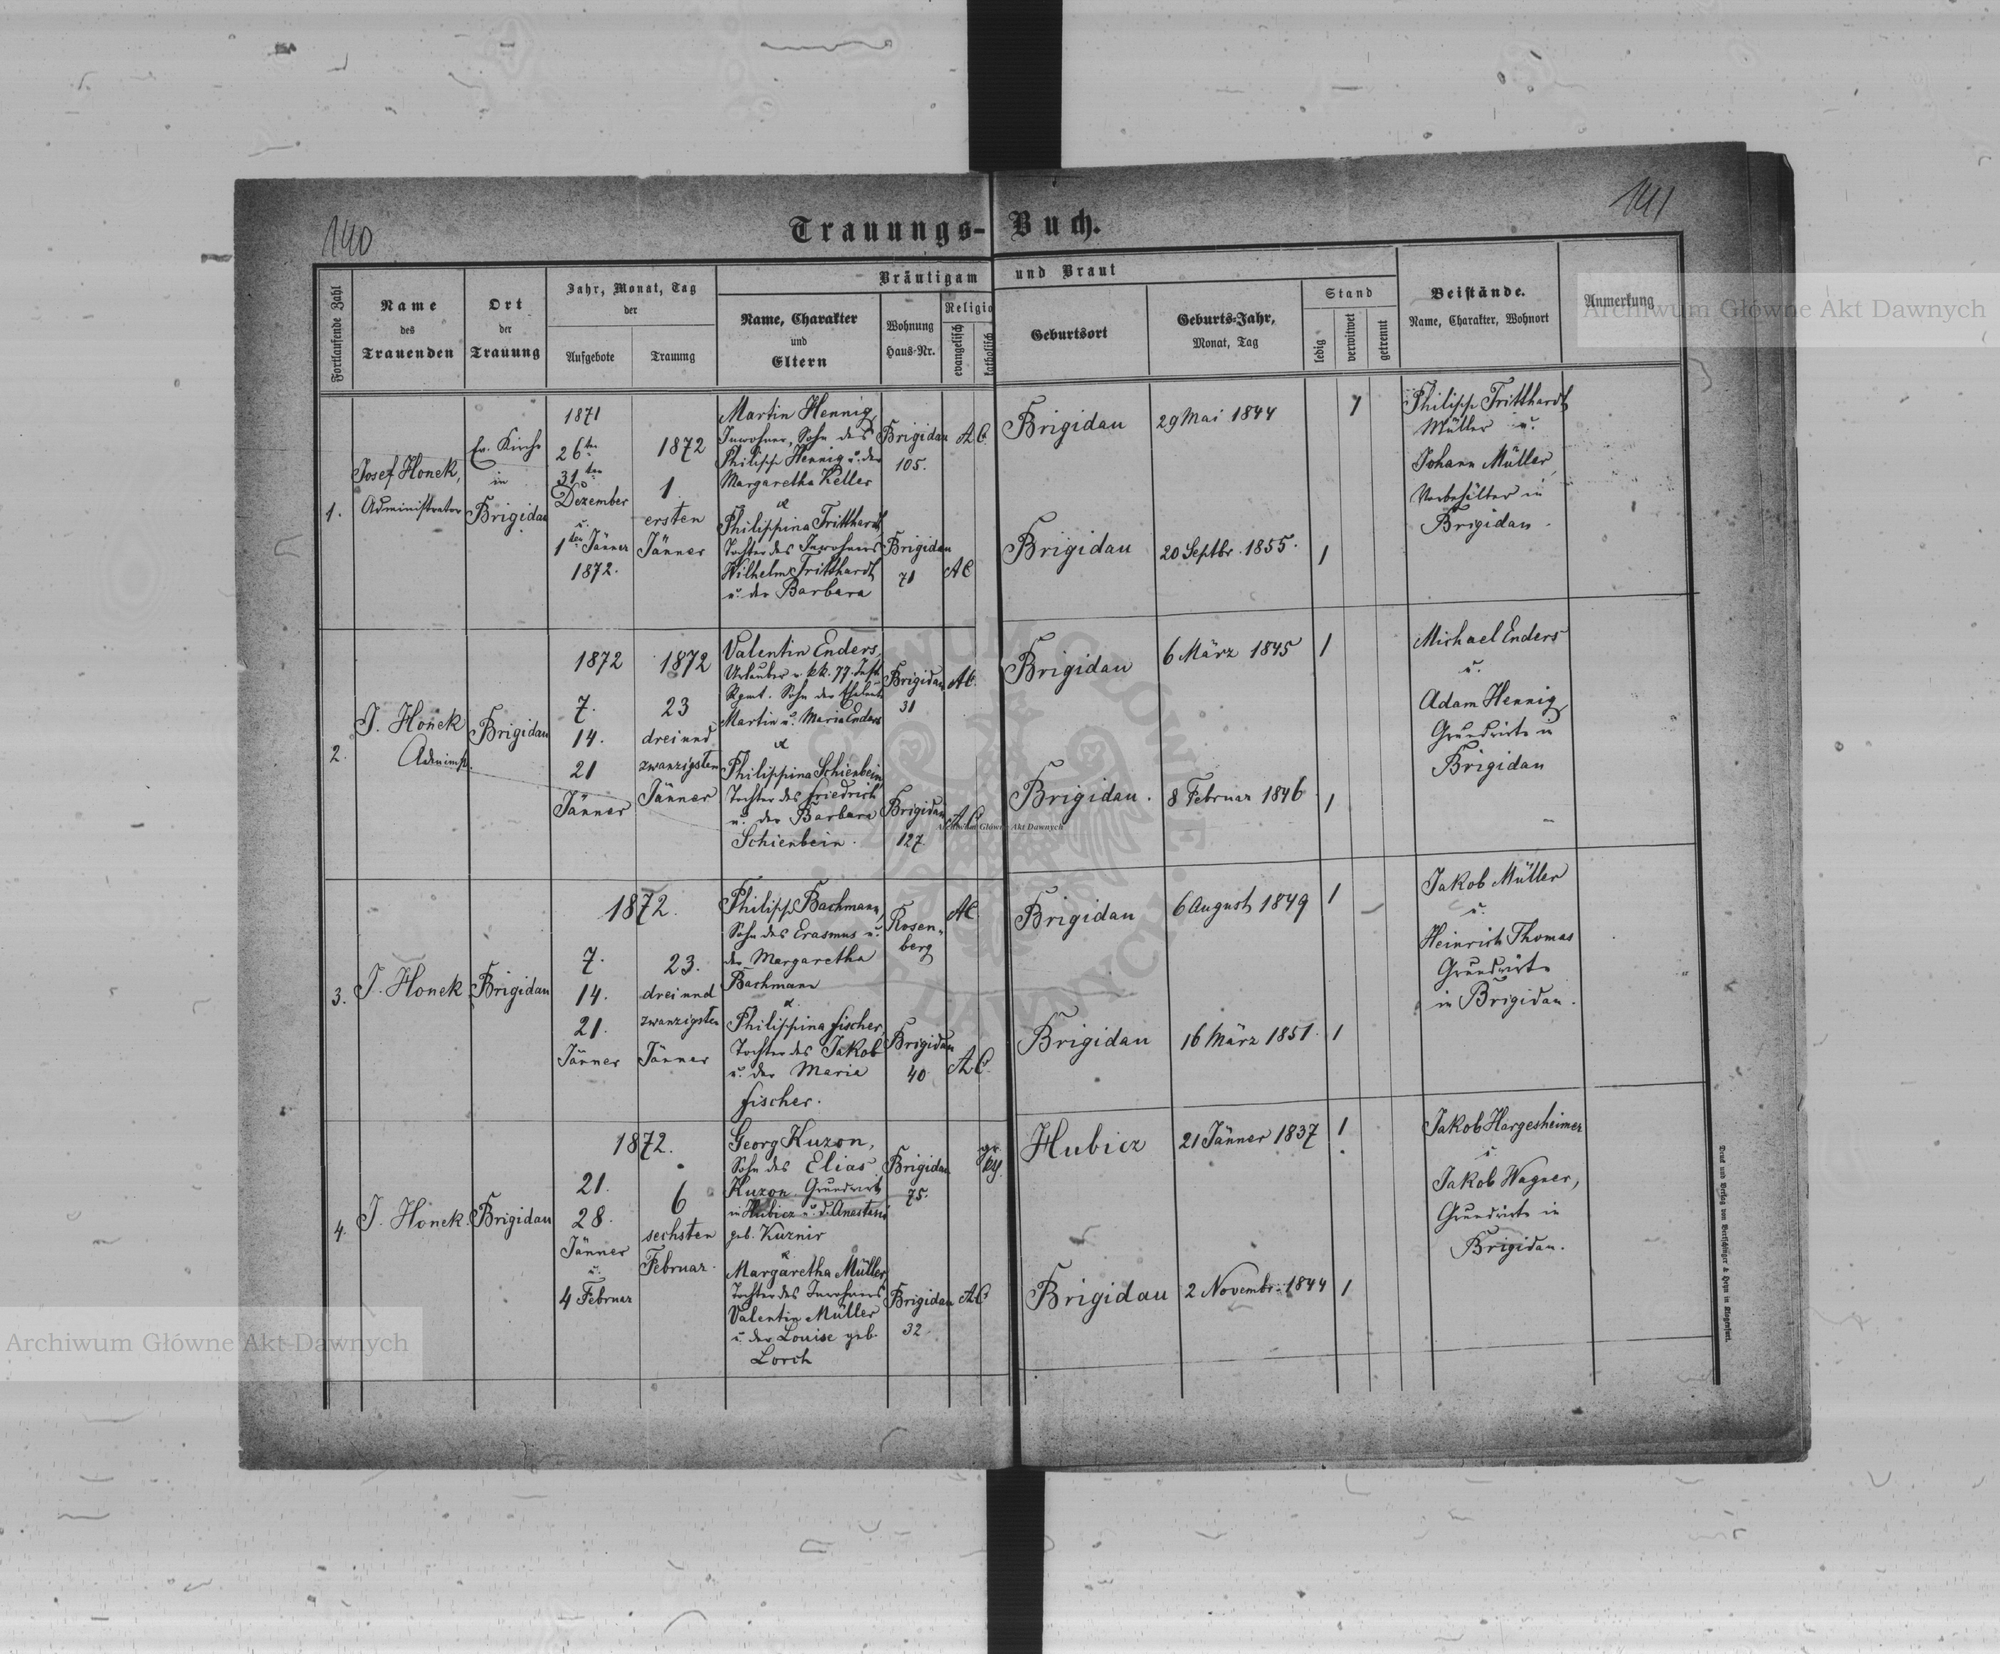 140
141
Trauungs-Buch.
Fortlaufende Zahl
Name
des
Trauenden
Ort
der
Trauung
Jahr, Monat, Tag
der
Aufgebote
Trauung
Bräutigam und Braut
Name, Charakter
und
Eltern
Wohnung
Haus-Nr.
Religio
evangelisch
katholisch
Geburtsort
Geburts-Jahr,
Monat, Tag
Stand
ledig
verwitwet
getrennt
Beistände.
Name, Charakter, Wohnort
Anmerkung
1.
Josef Honek,
Administrator
Ev. Kirche
in
Brigidau
1871
26ten
31ten
Dezember
u.
1ten Jänner
1872.
1872
1
ersten
Jänner
Martin Hennig,
Inwohner, Sohn des
Philipp Hennig u. der
Margaretha Keller
&
Philippina Tritthardt
Tochter des Inwohners
Wilhelm Tritthardt
u. der Barbara
Brigidau
105.
A.C.
Brigidau
71
A.C.
Brigidau
29 Mai 1844
1
Brigidau
20 Septbr. 1855.
1
Philipp Tritthardt
Müller u.
Johann Müller,
in
Brigidau.
2.
J. Honek
Administ.
Brigidau
1872
7.
14.
21
Jänner
1872
23
dreiund
zwanzigsten
Jänner
Valentin Enders,
Urlauber v. kk. 77. Inft.
Rgmt. Sohn der Eheleute
Martin u. Maria Enders
&
Philippina Schienbein
Tochter des Friedrich
u. der Barbara
Schienbein.
Brigidau
31
A.C.
Brigidau
127.
A.C.
Brigidau
6 März 1845
1
Brigidau.
8 Februar 1846
1
Michael Enders
u.
Adam Hennig,
Grundwirte in
Brigidau
3.
J. Honek
Brigidau
1872.
7.
14.
21.
Jänner
23.
dreiund
zwanzigsten
Jänner
Philipp Bachmann,
Sohn des Erasmus u.
der Margaretha
Bachmann
&
Philippina Fischer,
Tochter des Jakob
u. der Maria
Fischer.
Rosen-
berg
A.C.
Brigidau
40
A.C.
Brigidau
6 August 1849
1
Brigidau
16 März 1851.
1
Jakob Müller
u.
Heinrich Thomas
Grundwirte
in Brigidau.
4.
J. Honek.
Brigidau
1872.
21.
28.
Jänner
u.
4 Februar
6
sechsten
Februar.
Georg Kuzon,
Sohn des Elias
Kuzon Grundwirt
in Hubicz u. d. Anastasia
geb. Kuznir
&
Margaretha Müller,
Tochter des Inwohners
Valentin Müller
u. der Louise geb.
Lorch
Brigidau
75.
gr.
Brigidau
32
A.C.
Hubicz
21 Jänner 1837
1
Brigidau
2 Novembr. 1844
1
Jakob Hargesheimer
u.
Jakob Wagner,
Grundwirte in
Brigidau.
Druck und Verlag von Bertschinger & Heyn in Klagenfurt.
Archiwum Główne Akt Dawnych
Archiwum Główne Akt Dawnych
Archiwum Główne Akt Dawnych
ARCHIWUM GŁÓWNE AKT DAWNYCH